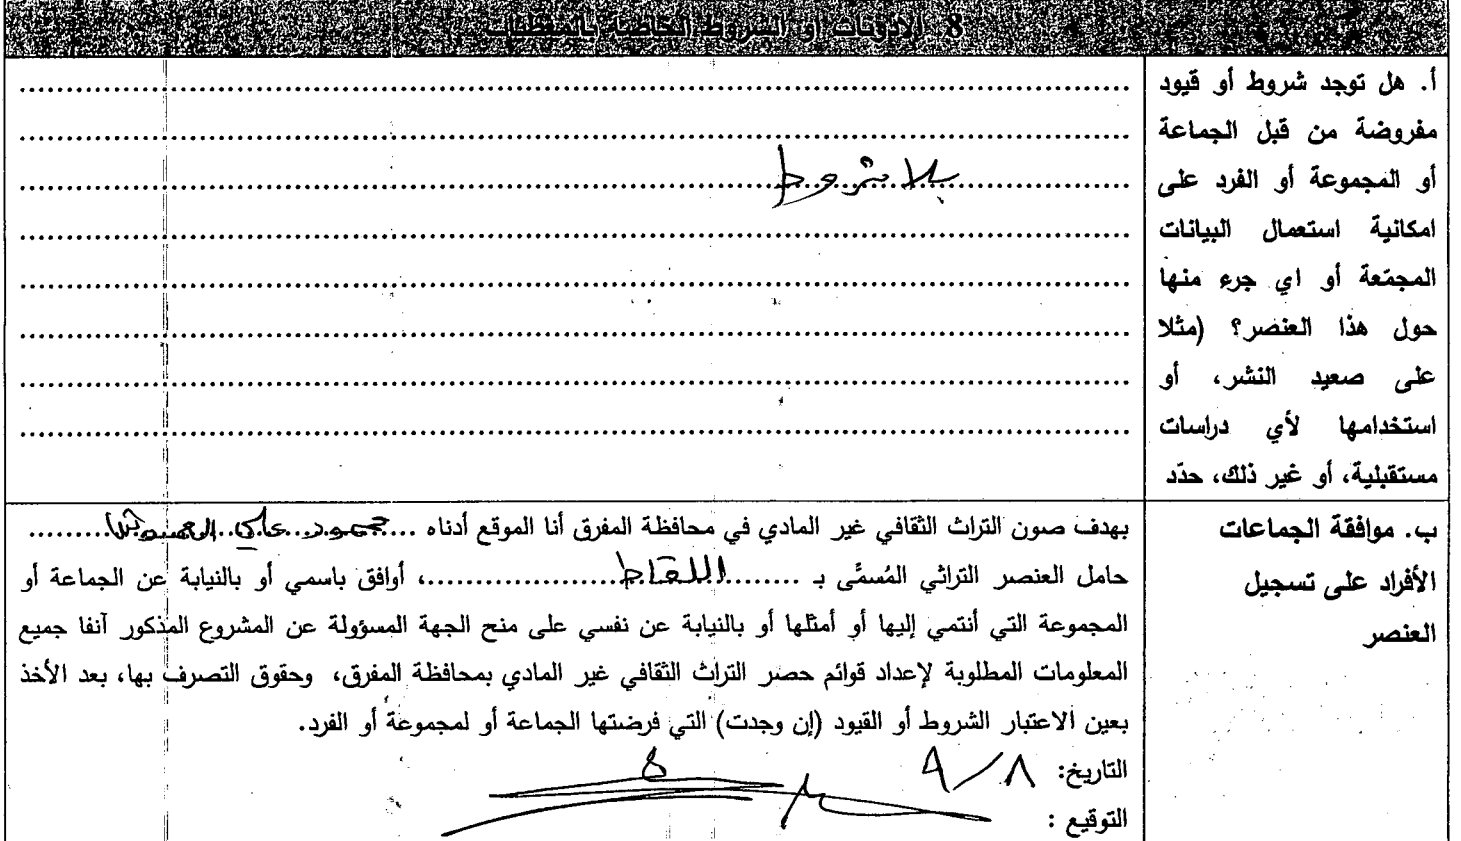 8. الأذونات أو الشروط الخاصة بالمقتنيات
أ. هل توجد شروط أو قيود
مفروضة من قبل الجماعة
أو المجموعة أو الفرد على
امكانية استعمال البيانات
المجمّعة أو اي جرء منها
حول هذا العنصر؟ (مثلا
على صعيد النشر، أو
استخدامها لأي دراسات
مستقبلية، أو غير ذلك، حدّد
بلا شروط
ب. موافقة الجماعات
الأفراد على تسجيل
العنصر
بهدف صون التراث الثقافي غير المادي في محافظة المفرق أنا الموقع أدناه ... علي
حامل العنصر التراثي المُسمَّى بـ ........اللقاط....................، أوافق باسمي أو بالنيابة عن الجماعة أو
المجموعة التي أنتمي إليها أو أمثلها أو بالنيابة عن نفسي على منح الجهة المسؤولة عن المشروع المذكور آنفا جميع
المعلومات المطلوبة لإعداد قوائم حصر التراث الثقافي غير المادي بمحافظة المفرق، وحقوق التصرف بها، بعد الأخذ
بعين الاعتبار الشروط أو القيود (إن وجدت) التي فرضتها الجماعة أو لمجموعة أو الفرد.
التاريخ: ٨/٩
التوقيع :